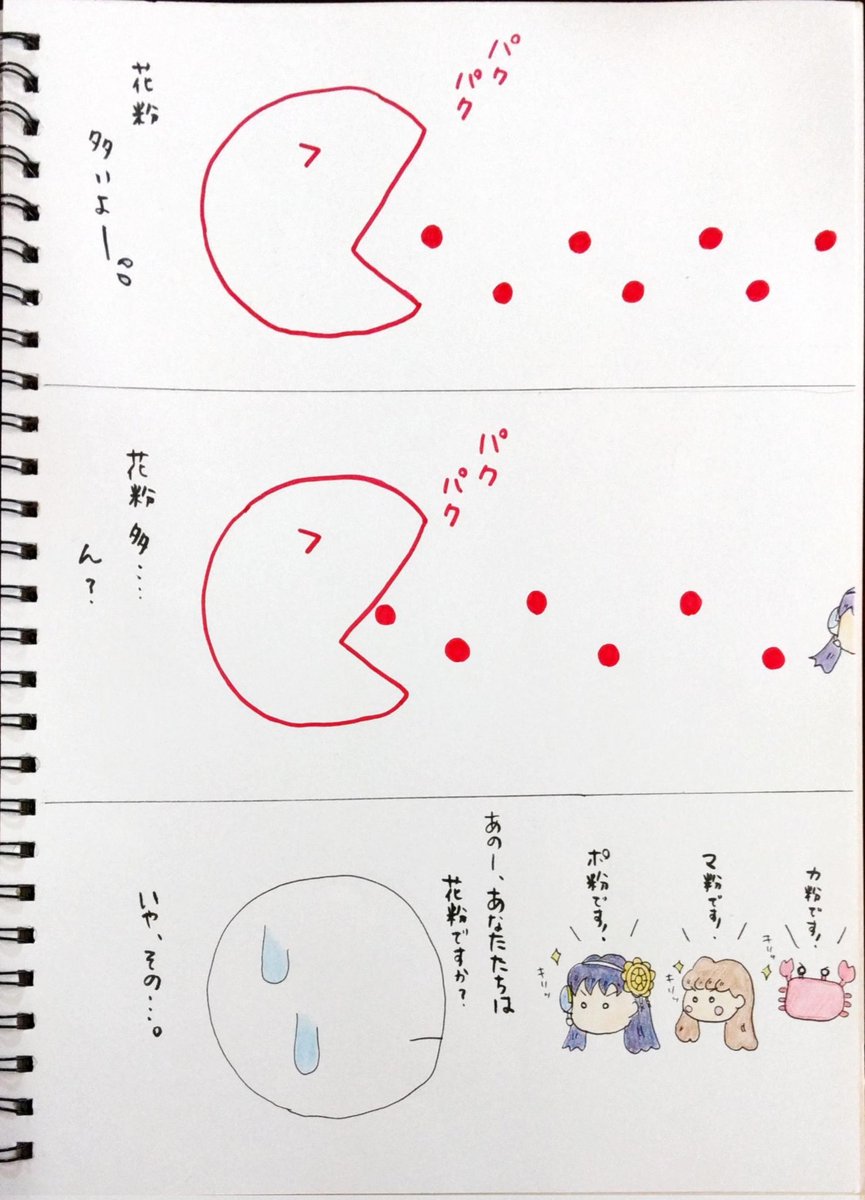 パク
パク
花粉
多いよー。。
パク
パク
花粉多……
ん？
カ粉です！
キリッ
マ粉です！
キリッ
ポ粉です！
キリッ
あのー、あなたたちは
花粉ですか？
いや、その…。